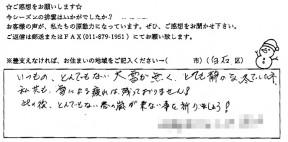 ☆ご感想をお願いします☆
今シーズンの排雪はいかがでしたか？
お客様の声が、私たちの原動力になっています。ぜひ、ご感想をお聞かせ下さい。
ご返信は郵送またはFAX(011-879-1951)にてお願い致します。
※差支えなければ、お住まいの地域をご記入ください（ 市）（白石 区）
いつもの、とんでもない大雪が無く、とても静かな冬でした。
私共も、雪による疲れは、残っておりません！
此の後、とんでもない春の嵐が来ない事を祈りましょう！